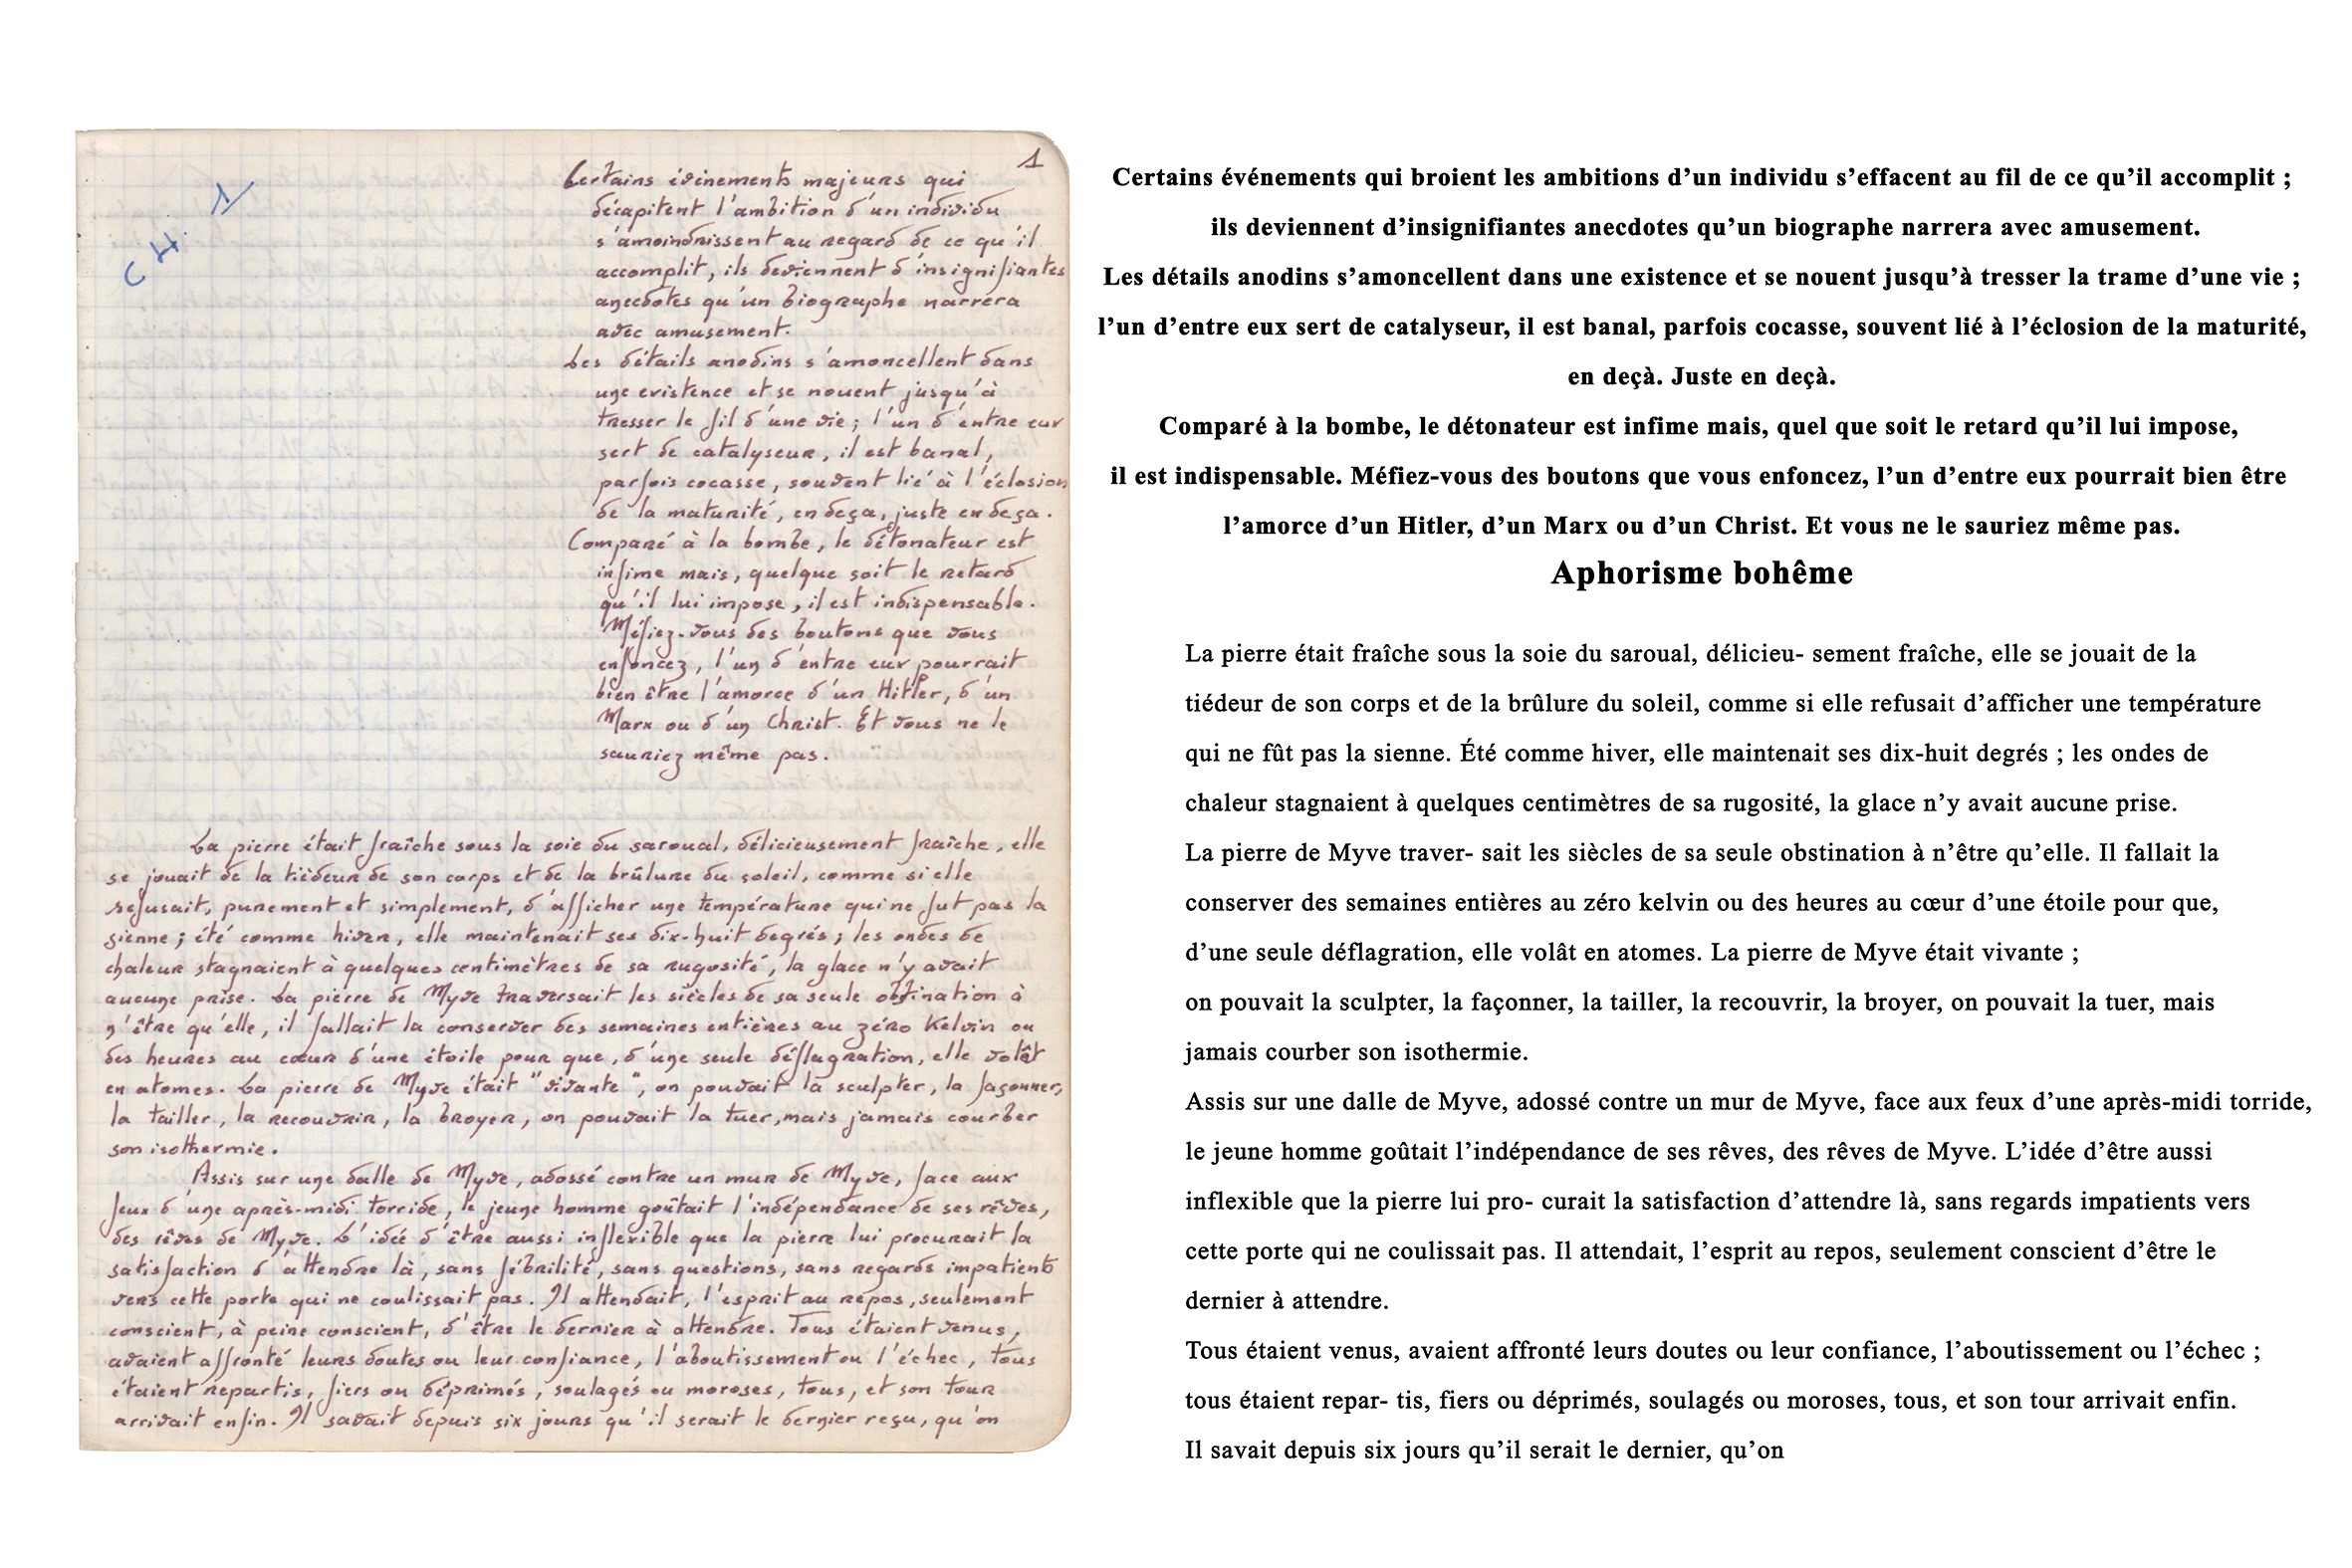 1
CH. 1
Certains évènements majeurs qui
décapitent l'ambition d'un individu
s'amoindrissent au regard de ce qu'il
accomplit, ils deviennent d'insignifiantes
anecdotes qu'un biographe narrera
avec amusement.
Les détails anodins s'amoncellent dans
une existence et se nouent jusqu'à
tresser le fil d'une vie ; l'un d'entre eux
sert de catalyseur, il est banal,
parfois cocasse, souvent lié à l'éclosion
de la maturité, en deça, juste en deça.
Comparé à la bombe, le détonateur est
infime mais, quelque soit le retard
qu'il lui impose, il est indispensable.
Méfiez-vous des boutons que vous
enfoncez, l'un d'entre eux pourrait
bien être l'amorce d'un Hitler, d'un
Marx ou d'un Christ. Et vous ne le
sauriez même pas.
La pierre était fraîche sous la soie du saroual, délicieusement fraîche, elle
se jouait de la tiédeur de son corps et de la brûlure du soleil, comme si elle
refusait, purement et simplement, d'afficher une température qui ne fut pas la
sienne ; été comme hiver, elle maintenait ses dix-huit degrés ; les ondes de
chaleur stagnaient à quelques centimètres de sa rugosité, la glace n'y avait
aucune prise. La pierre de Myve traversait les siècles de sa seule obstination à
n'être qu'elle, il fallait la conserver des semaines entières au zéro Kelvin ou
des heures au cœur d'une étoile pour que, d'une seule déflagration, elle volât
en atomes. La pierre de Myve était "vivante", on pouvait la sculpter, la façonner,
la tailler, la recouvrir, la broyer, on pouvait la tuer, mais jamais courber
son isothermie.
Assis sur une dalle de Myve, adossé contre un mur de Myve, face aux
feux d'une après-midi torride, le jeune homme goûtait l'indépendance de ses rêves,
des rêves de Myve. L'idée d'être aussi inflexible que la pierre lui procurait la
satisfaction d'attendre là, sans fébrilité, sans questions, sans regards impatients
vers cette porte qui ne coulissait pas. Il attendait, l'esprit au repos, seulement
conscient, à peine conscient, d'être le dernier à attendre. Tous étaient venus,
avaient affronté leurs doutes ou leur confiance, l'aboutissement ou l'échec, tous
étaient repartis, fiers ou déprimés, soulagés ou moroses, tous, et son tour
arrivait enfin. Il savait depuis six jours qu'il serait le dernier reçu, qu'on
Certains événements qui broient les ambitions d’un individu s’effacent au fil de ce qu’il accomplit ;
ils deviennent d’insignifiantes anecdotes qu’un biographe narrera avec amusement.
Les détails anodins s’amoncellent dans une existence et se nouent jusqu’à tresser la trame d’une vie ;
l’un d’entre eux sert de catalyseur, il est banal, parfois cocasse, souvent lié à l’éclosion de la maturité,
en deçà. Juste en deçà.
Comparé à la bombe, le détonateur est infime mais, quel que soit le retard qu’il lui impose,
il est indispensable. Méfiez-vous des boutons que vous enfoncez, l’un d’entre eux pourrait bien être
l’amorce d’un Hitler, d’un Marx ou d’un Christ. Et vous ne le sauriez même pas.
Aphorisme bohême
La pierre était fraîche sous la soie du saroual, délicieu- sement fraîche, elle se jouait de la
tiédeur de son corps et de la brûlure du soleil, comme si elle refusait d’afficher une température
qui ne fût pas la sienne. Été comme hiver, elle maintenait ses dix-huit degrés ; les ondes de
chaleur stagnaient à quelques centimètres de sa rugosité, la glace n’y avait aucune prise.
La pierre de Myve traver- sait les siècles de sa seule obstination à n’être qu’elle. Il fallait la
conserver des semaines entières au zéro kelvin ou des heures au cœur d’une étoile pour que,
d’une seule déflagration, elle volât en atomes. La pierre de Myve était vivante ;
on pouvait la sculpter, la façonner, la tailler, la recouvrir, la broyer, on pouvait la tuer, mais
jamais courber son isothermie.
Assis sur une dalle de Myve, adossé contre un mur de Myve, face aux feux d’une après-midi torride,
le jeune homme goûtait l’indépendance de ses rêves, des rêves de Myve. L’idée d’être aussi
inflexible que la pierre lui pro- curait la satisfaction d’attendre là, sans regards impatients vers
cette porte qui ne coulissait pas. Il attendait, l’esprit au repos, seulement conscient d’être le
dernier à attendre.
Tous étaient venus, avaient affronté leurs doutes ou leur confiance, l’aboutissement ou l’échec ;
tous étaient repar- tis, fiers ou déprimés, soulagés ou moroses, tous, et son tour arrivait enfin.
Il savait depuis six jours qu’il serait le dernier, qu’on